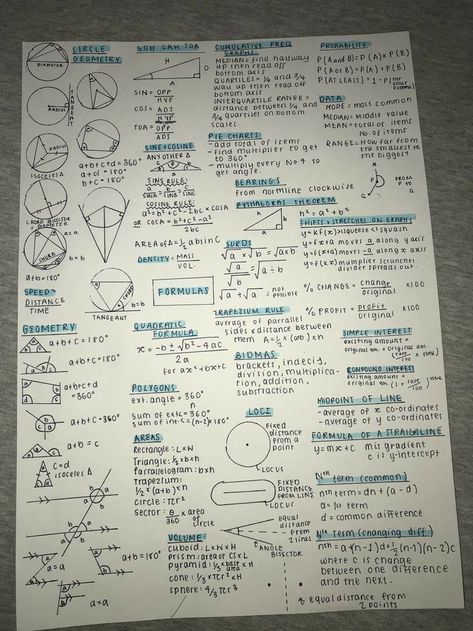 CIRCLE
GEOMETRY
DIAMETER
TANGENT
RADIUS
ISOCELES Δ
a+b+c+d = 360°
a+d = 180°
b+c = 180°
CHORD BISECTOR
= DIAMETER
a+b=180°
CHORD
TANGEANT
b=b
SPEED =
DISTANCE
TIME
GEOMETRY
a+b+c=180°
a+b+c+d
=360°
a+b+c=360°
a+b=c
c=d
isoceles Δ
a+b=180°
a=a
SOH CAH TOA
H
O
A
SIN = OPP
HYP
COS = ADJ
HYP
TOA = OPP
ADJ
SINE+COSINE
ANY OTHER Δ
SINE RULE:
COSINE RULE
a²=b²+c²-2bc×COSA
or COSA = b²+c²-a²
2bc
AREA OF Δ = ½ absinC
DENSITY = MASS
VOL.
FORMULAS
QUADRATIC
FORMULA
x = -b±√b²-4ac
2a
for ax²+bx+c
POLYGONS
ext. angle = 360°
n
sum of ext = 360°
sum of int = (n-2)×180°
AREAS
Rectangle: L×W
Triangle: ½×b×h
Parallelogram: b×h
Trapezium:
½×(a+b)×h
circle: πr²
sector: θ × area
360 of circle
VOLUME
cuboid: L×W×H
prism: area of CS×L
pyramid: ⅓×base area×H
cone: ⅓×πr²×H
sphere: 4/3 πr³
CUMULATIVE FREQ
GRAPHS
MEDIAN = find halfway
up then read off
bottom axis
QUARTILES = ¼ and ¾
way up then read off
bottom axis
INTERQUARTILE RANGE =
distance between ¼ and
¾ quartiles on bottom
scales
PIE CHARTS
- add total of items
- find multiplier to get
to 360°
- multiply every No 4 to
get angle.
BEARINGS
from north line clockwise
PYTHAGORAS THEOREM
h²=a²+b²
SURDS
√a × √b = √a×b
√a = √a÷b
√b
√a + √a = not
possible
TRAPEZIUM RULE
average of parallel
sides × distance between
them A=½×(a+b)×h
BIDMAS
brackets, indecis,
division, multiplica-
tion, addition,
subtraction
LOCI
fixed
distance
from a
point
LOCUS
FIXED
DISTANCE
FROM LINE
LOCUS
equal
distance
from
2 lines
ANGLE
BISECTOR
PROBABILITY
P(A and B)=P(A)×P(B)
P(A or B)=P(A)+P(B)
DATA
MODE: most common
MEDIAN: Middle value
MEAN: total of items
No of items
RANGE: How far from
the smallest to
the biggest
FROM
P to
Q
SHIFTS + STRETCHES ON GRAPHS
y=f(x)+a moves a along y axis
y=f(x+a) moves -a along x axis
% CHANGE = change ×100
original
% PROFIT = profit ×100
original
SIMPLE INTEREST
existing amount =
COMPOUND INTEREST
existing amount =
MIDPOINT OF LINE
- average of x co-ordinates
- average of y co-ordinates
FORMULA OF A STRAIGHT LINE
y=mx+c m is gradient
c is y-intercept
Nth term (common)
nth term = dn + (a-d)
a = 1st term
d = common difference
Nth Term (changing diff)
nth = a+(n-1)d+½(n-1)(n-2)c
where c is change
between one difference
and the next.
equal distance from
2 points